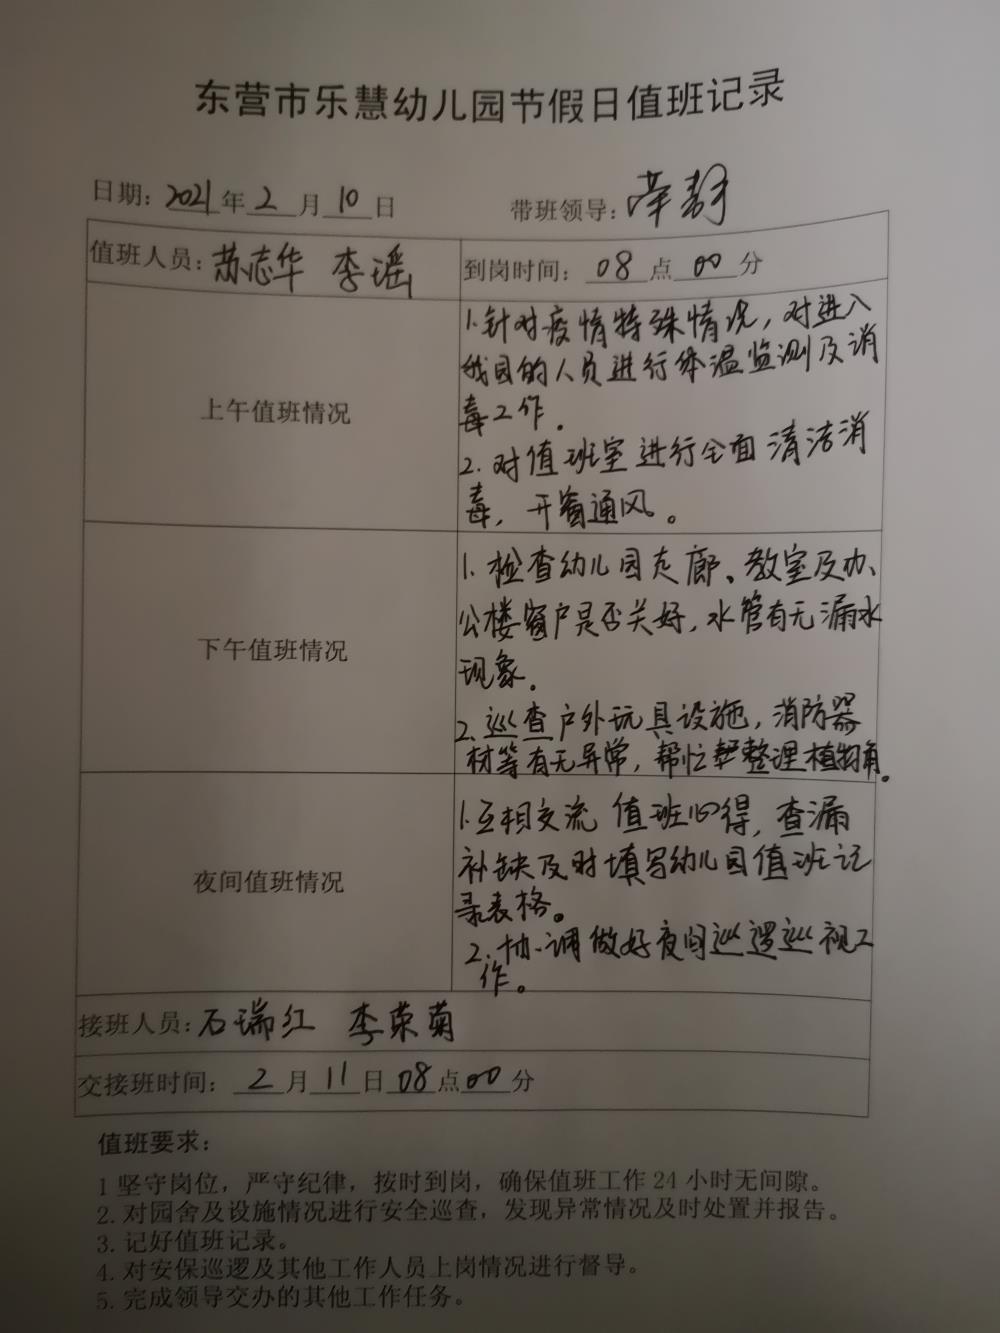 东营市乐慧幼儿园节假日值班记录
日期：2021年2月10日 带班领导：荣静
值班人员：苏志华 李瑶 到岗时间：08点00分
上午值班情况
1.针对疫情特殊情况，对进入
我园的人员进行体温监测及消
毒工作.
2.对值班室进行全面清洁消
毒，开窗通风。
下午值班情况
1.检查幼儿园走廊、教室及办
公楼窗户是否关好，水管有无漏水
现象.
2.巡查户外玩具设施，消防器
材等有无异常，帮忙整理植物角.
夜间值班情况
1.互相交流值班心得，查漏
补缺及时填写幼儿园值班记
录表格。
2.协调做好夜间巡逻巡视工
作。
接班人员：石瑞红 李荣菊
交接班时间：2月11日08点00分
值班要求：
1 坚守岗位，严守纪律，按时到岗，确保值班工作24小时无间隙。
2. 对园舍及设施情况进行安全巡查，发现异常情况及时处置并报告。
3. 记好值班记录。
4. 对安保巡逻及其他工作人员上岗情况进行督导。
5. 完成领导交办的其他工作任务。